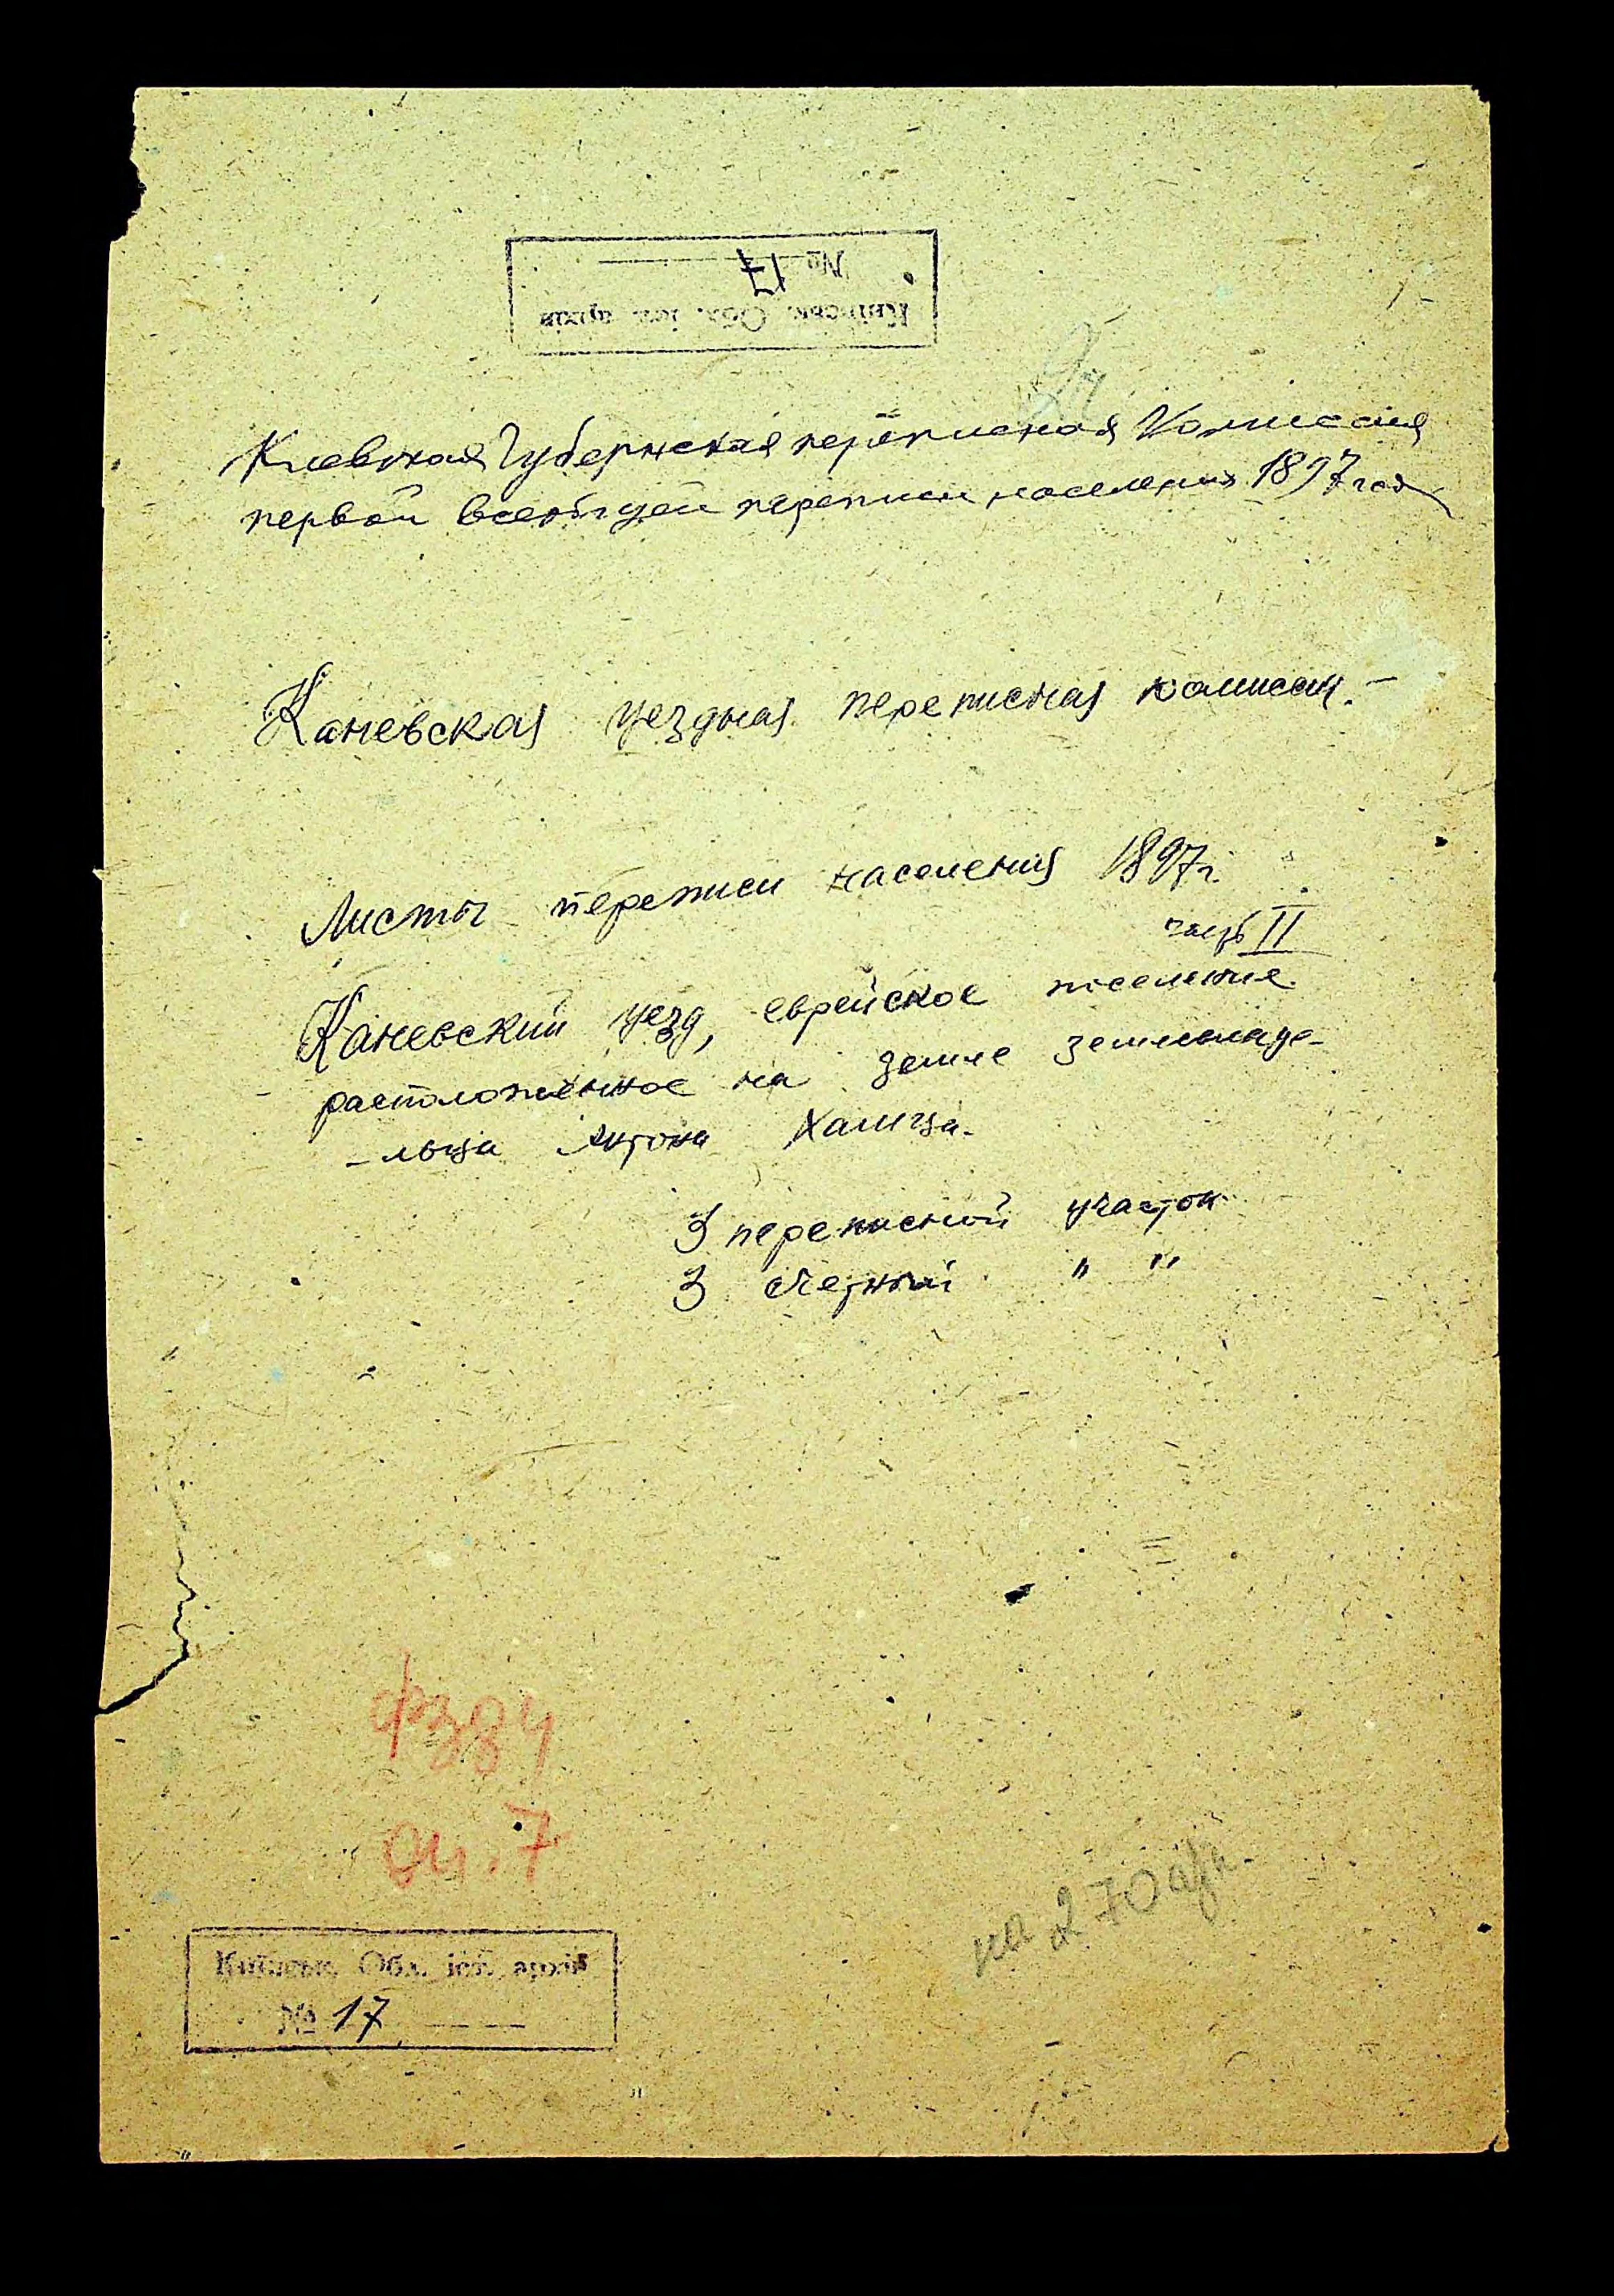 № 17
Київськ. Обл. іст. архів
Киевская Губернская переписная Комиссия
первой всеобщей переписи населения 1897 года
Каневская уездная переписная комиссия.
Листы переписи населения 1897 г.
часть II
Каневский уезд, еврейское поселение
расположенное на земле землевладе-
-льца Антона
3 переписной участок
3 счетный " "
ф 384
оп. 7
на 270 арк.
Київськ. Обл. іст. архів
№ 17